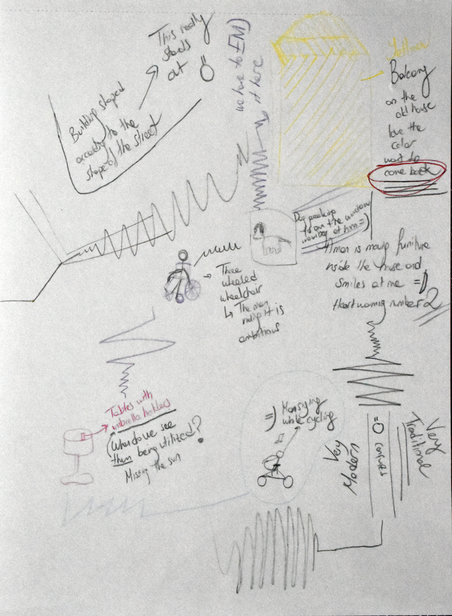 This really
stands
out
Building shaped
according to the
shape of the street
we have to
it here
Yellow
Balcony
on the
old house
love the
color
want to
come back
Dog peaking
from the window
Man is moving furniture
inside the house and
smiles at me =)
Heart warming number 2
Three
wheeled
wheelchair
↳ The man
riding it is
ambitious
Tables with
umbrella holders
When do we see
them being utilized?
Missing the sun
=) Man singing
while cycling
Very
Traditional
Very
Modern